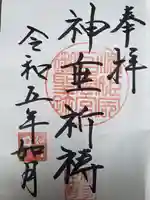 奉拝
神垂祈祷
令和五年如月